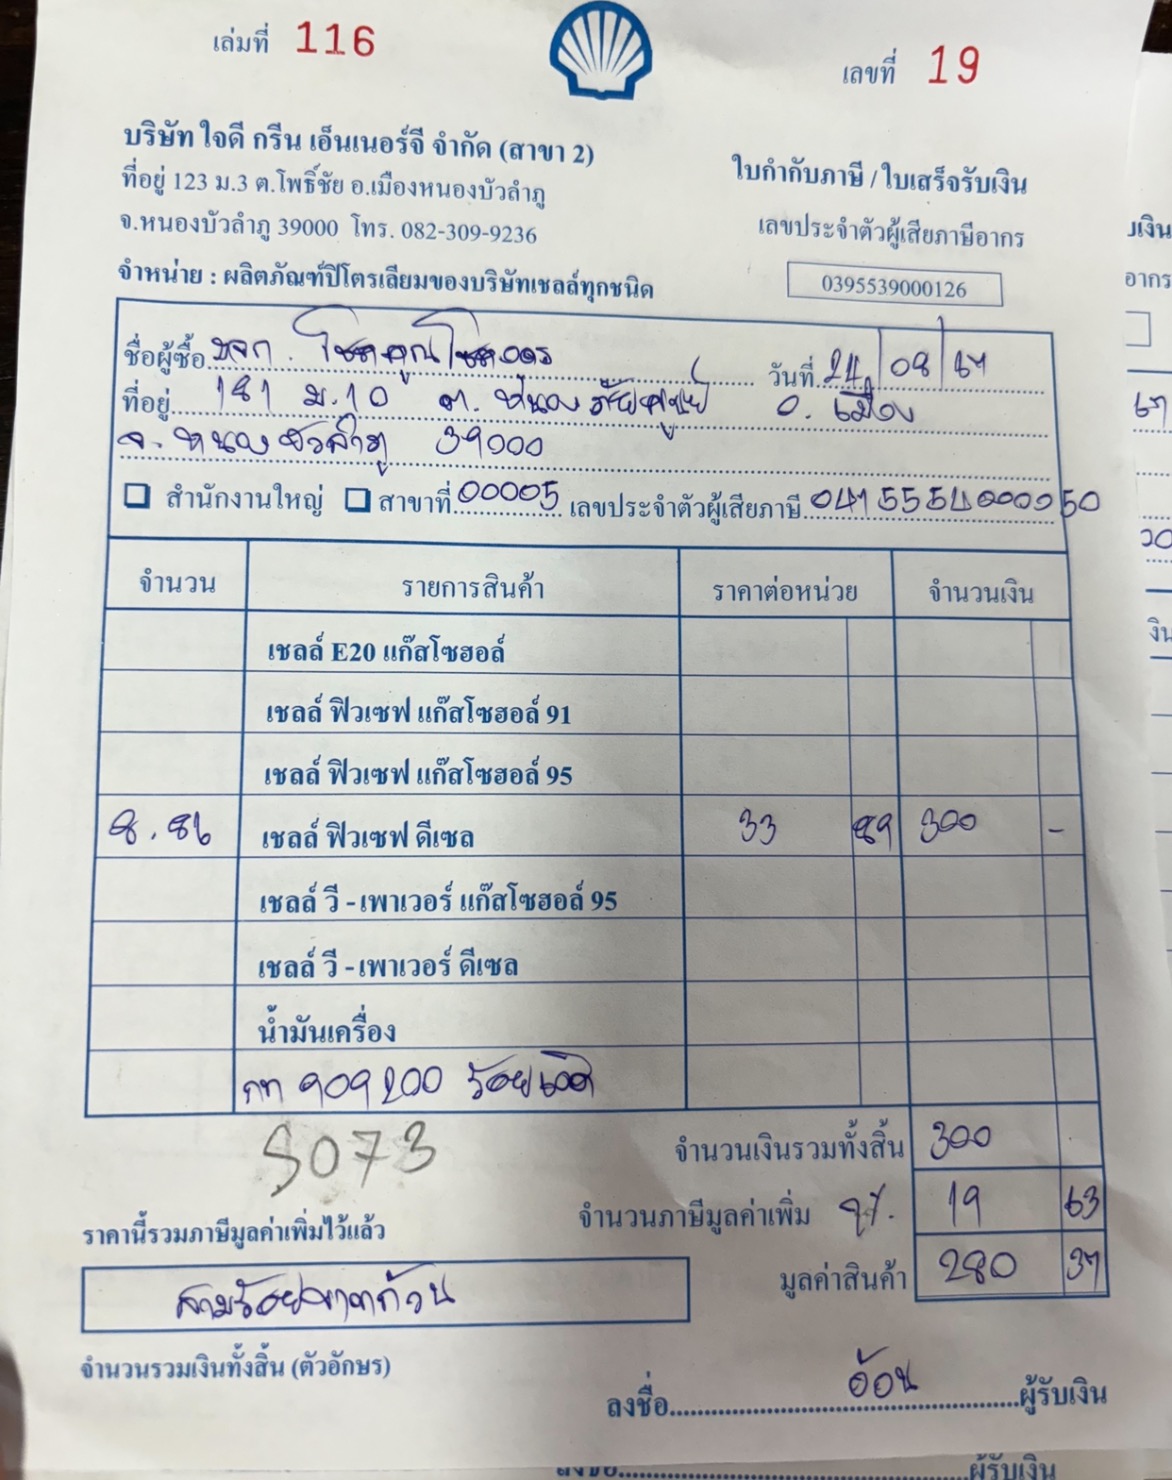 เล่มที่ 116
เลขที่ 19
บริษัท ใจดี กรีน เอ็นเนอร์จี จำกัด (สาขา 2)
ที่อยู่ 123 ม.3 ต.โพธิ์ชัย อ.เมืองหนองบัวลำภู
จ.หนองบัวลำภู 39000 โทร. 082-309-9236
จำหน่าย : ผลิตภัณฑ์ปิโตรเลียมของบริษัทเชลล์ทุกชนิด
ใบกำกับภาษี / ใบเสร็จรับเงิน
เลขประจำตัวผู้เสียภาษีอากร
0395539000126
ชื่อผู้ซื้อ หจก. โชคคูณโชคอุดร วันที่ 24/08/67
ที่อยู่ 181 ม.10 ต. หนองภัยศูนย์ อ. เมือง
จ. หนองบัวลำภู 39000
สำนักงานใหญ่ สาขาที่ 00005 เลขประจำตัวผู้เสียภาษี 0415554000050
จำนวน รายการสินค้า ราคาต่อหน่วย จำนวนเงิน
เชลล์ E20 แก๊สโซฮอล์
เชลล์ ฟิวเซฟ แก๊สโซฮอล์ 91
เชลล์ ฟิวเซฟ แก๊สโซฮอล์ 95
8.86 เชลล์ ฟิวเซฟ ดีเซล 33 89 300 -
เชลล์ วี - เพาเวอร์ แก๊สโซฮอล์ 95
เชลล์ วี - เพาเวอร์ ดีเซล
น้ำมันเครื่อง
909200 ร้อยเอ็ด
5073
จำนวนเงินรวมทั้งสิ้น 300
จำนวนภาษีมูลค่าเพิ่ม 7%. 19 63
มูลค่าสินค้า 280 37
ราคานี้รวมภาษีมูลค่าเพิ่มไว้แล้ว
สามร้อยบาทถ้วน
จำนวนรวมเงินทั้งสิ้น (ตัวอักษร)
ลงชื่อ อ้อน ผู้รับเงิน
ผู้รับเงิน